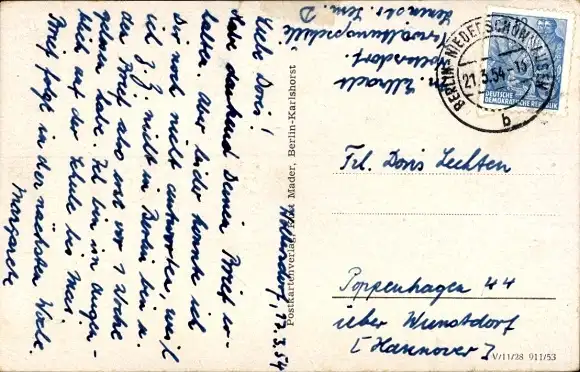 Liebe Doris!
Habe dankend Deinen Brief er-
halten. Aber leider konnte ich
Dir noch nicht antworten, weil
ich z. Z. nicht in Berlin bin u.
den Brief also erst vor 1 Woche
gelesen habe. Ich bin im Augen-
blick auf der Schule bis Mai.
Brief folgt in der nächsten Woche.
Margarete
Höhersdorf, 17.3.54
Postkartenverlag Kurt Mader, Berlin-Karlshorst
Verwaltungsschule
BERLIN-NIEDERSCHÖNHAUSEN
21.3.54.-16
b
DEUTSCHE
DEMOKRATISCHE REPUBLIK
Frl. Doris Lechten
Poggenhagen 44
über Wunstdorf
[Hannover]
V/11/28 911/53